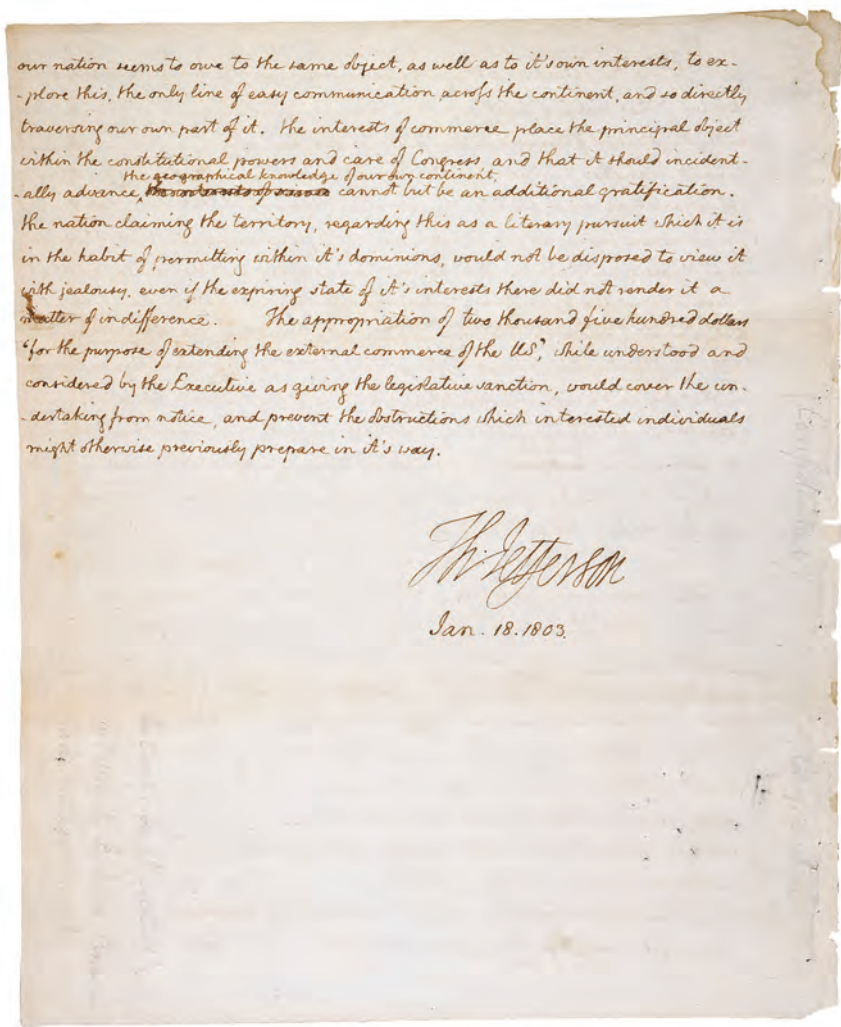 our nation seems to owe to the same object, as well as to it's own interests, to ex-
-plore this, the only line of easy communication across the continent, and so directly
traversing our own part of it. the interests of commerce place the principal object
within the constitutional powers and care of Congress, and that it should incident-
the geographical knowledge of our own continent,
-ally advance, cannot but be an additional gratification.
the nation claiming the territory, regarding this as a literary pursuit which it is
in the habit of permitting within it's dominions, would not be disposed to view it
with jealousy, even if the expiring state of it's interests there did not render it a
matter of indifference. The appropriation of two thousand five hundred dollars
"for the purpose of extending the external commerce of the US," while understood and
considered by the Executive as giving the legislative sanction, would cover the un-
-dertaking from notice, and prevent the obstructions which interested individuals
might otherwise previously prepare in it's way.
Th: Jefferson
Jan. 18. 1803.